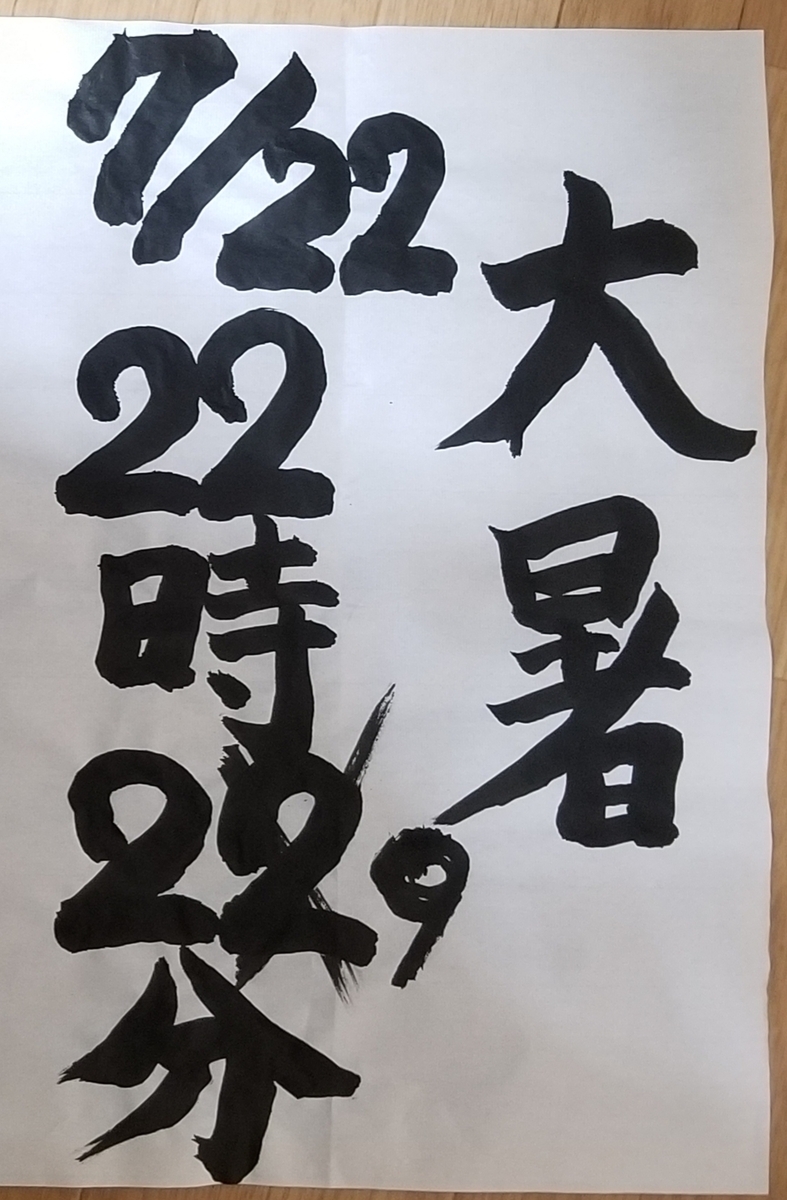 大暑
7/22
22時
229分